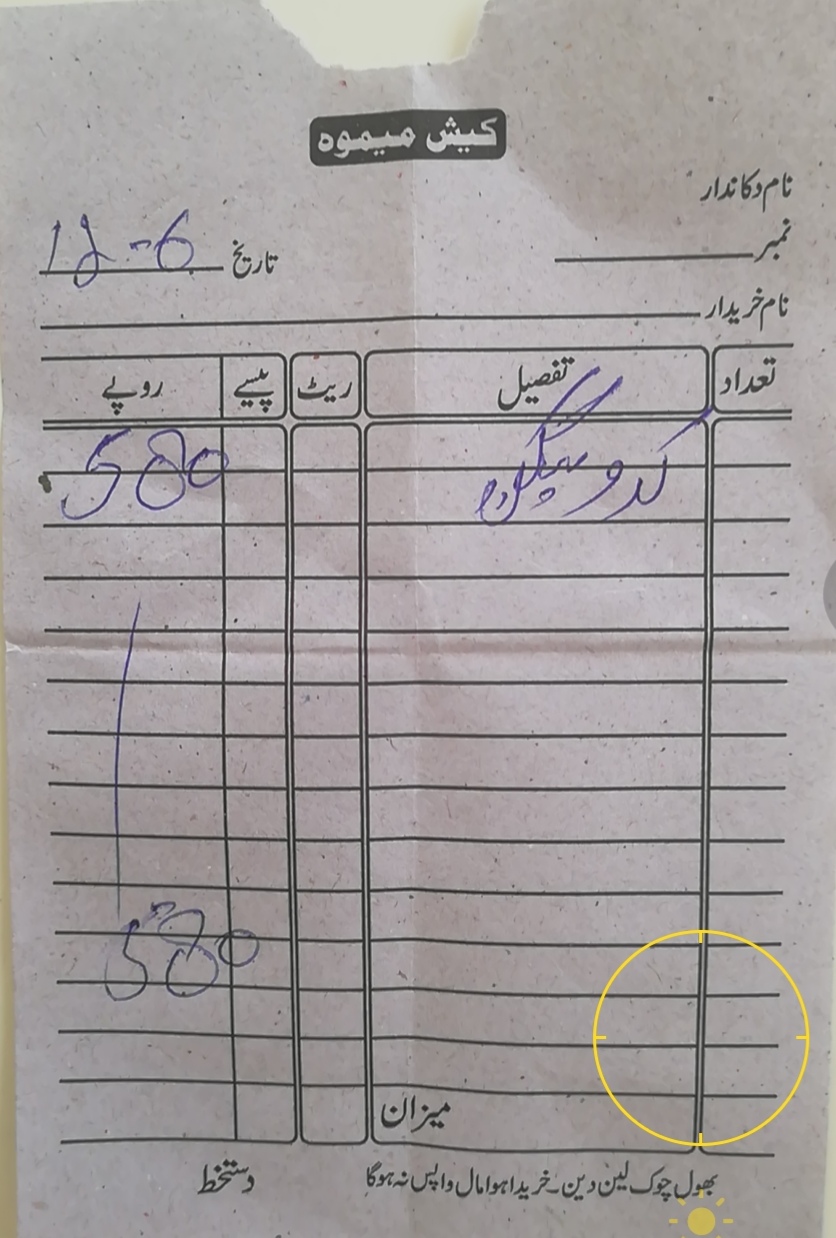 کیش میمو
نام دکاندار
نمبر
تاریخ 12-6
نام خریدار
تعداد تفصیل ریٹ پیسے روپے
کدو 580
580
میزان
بھول چوک لین دین۔ خریدا ہوا مال واپس نہ ہوگا
دستخط